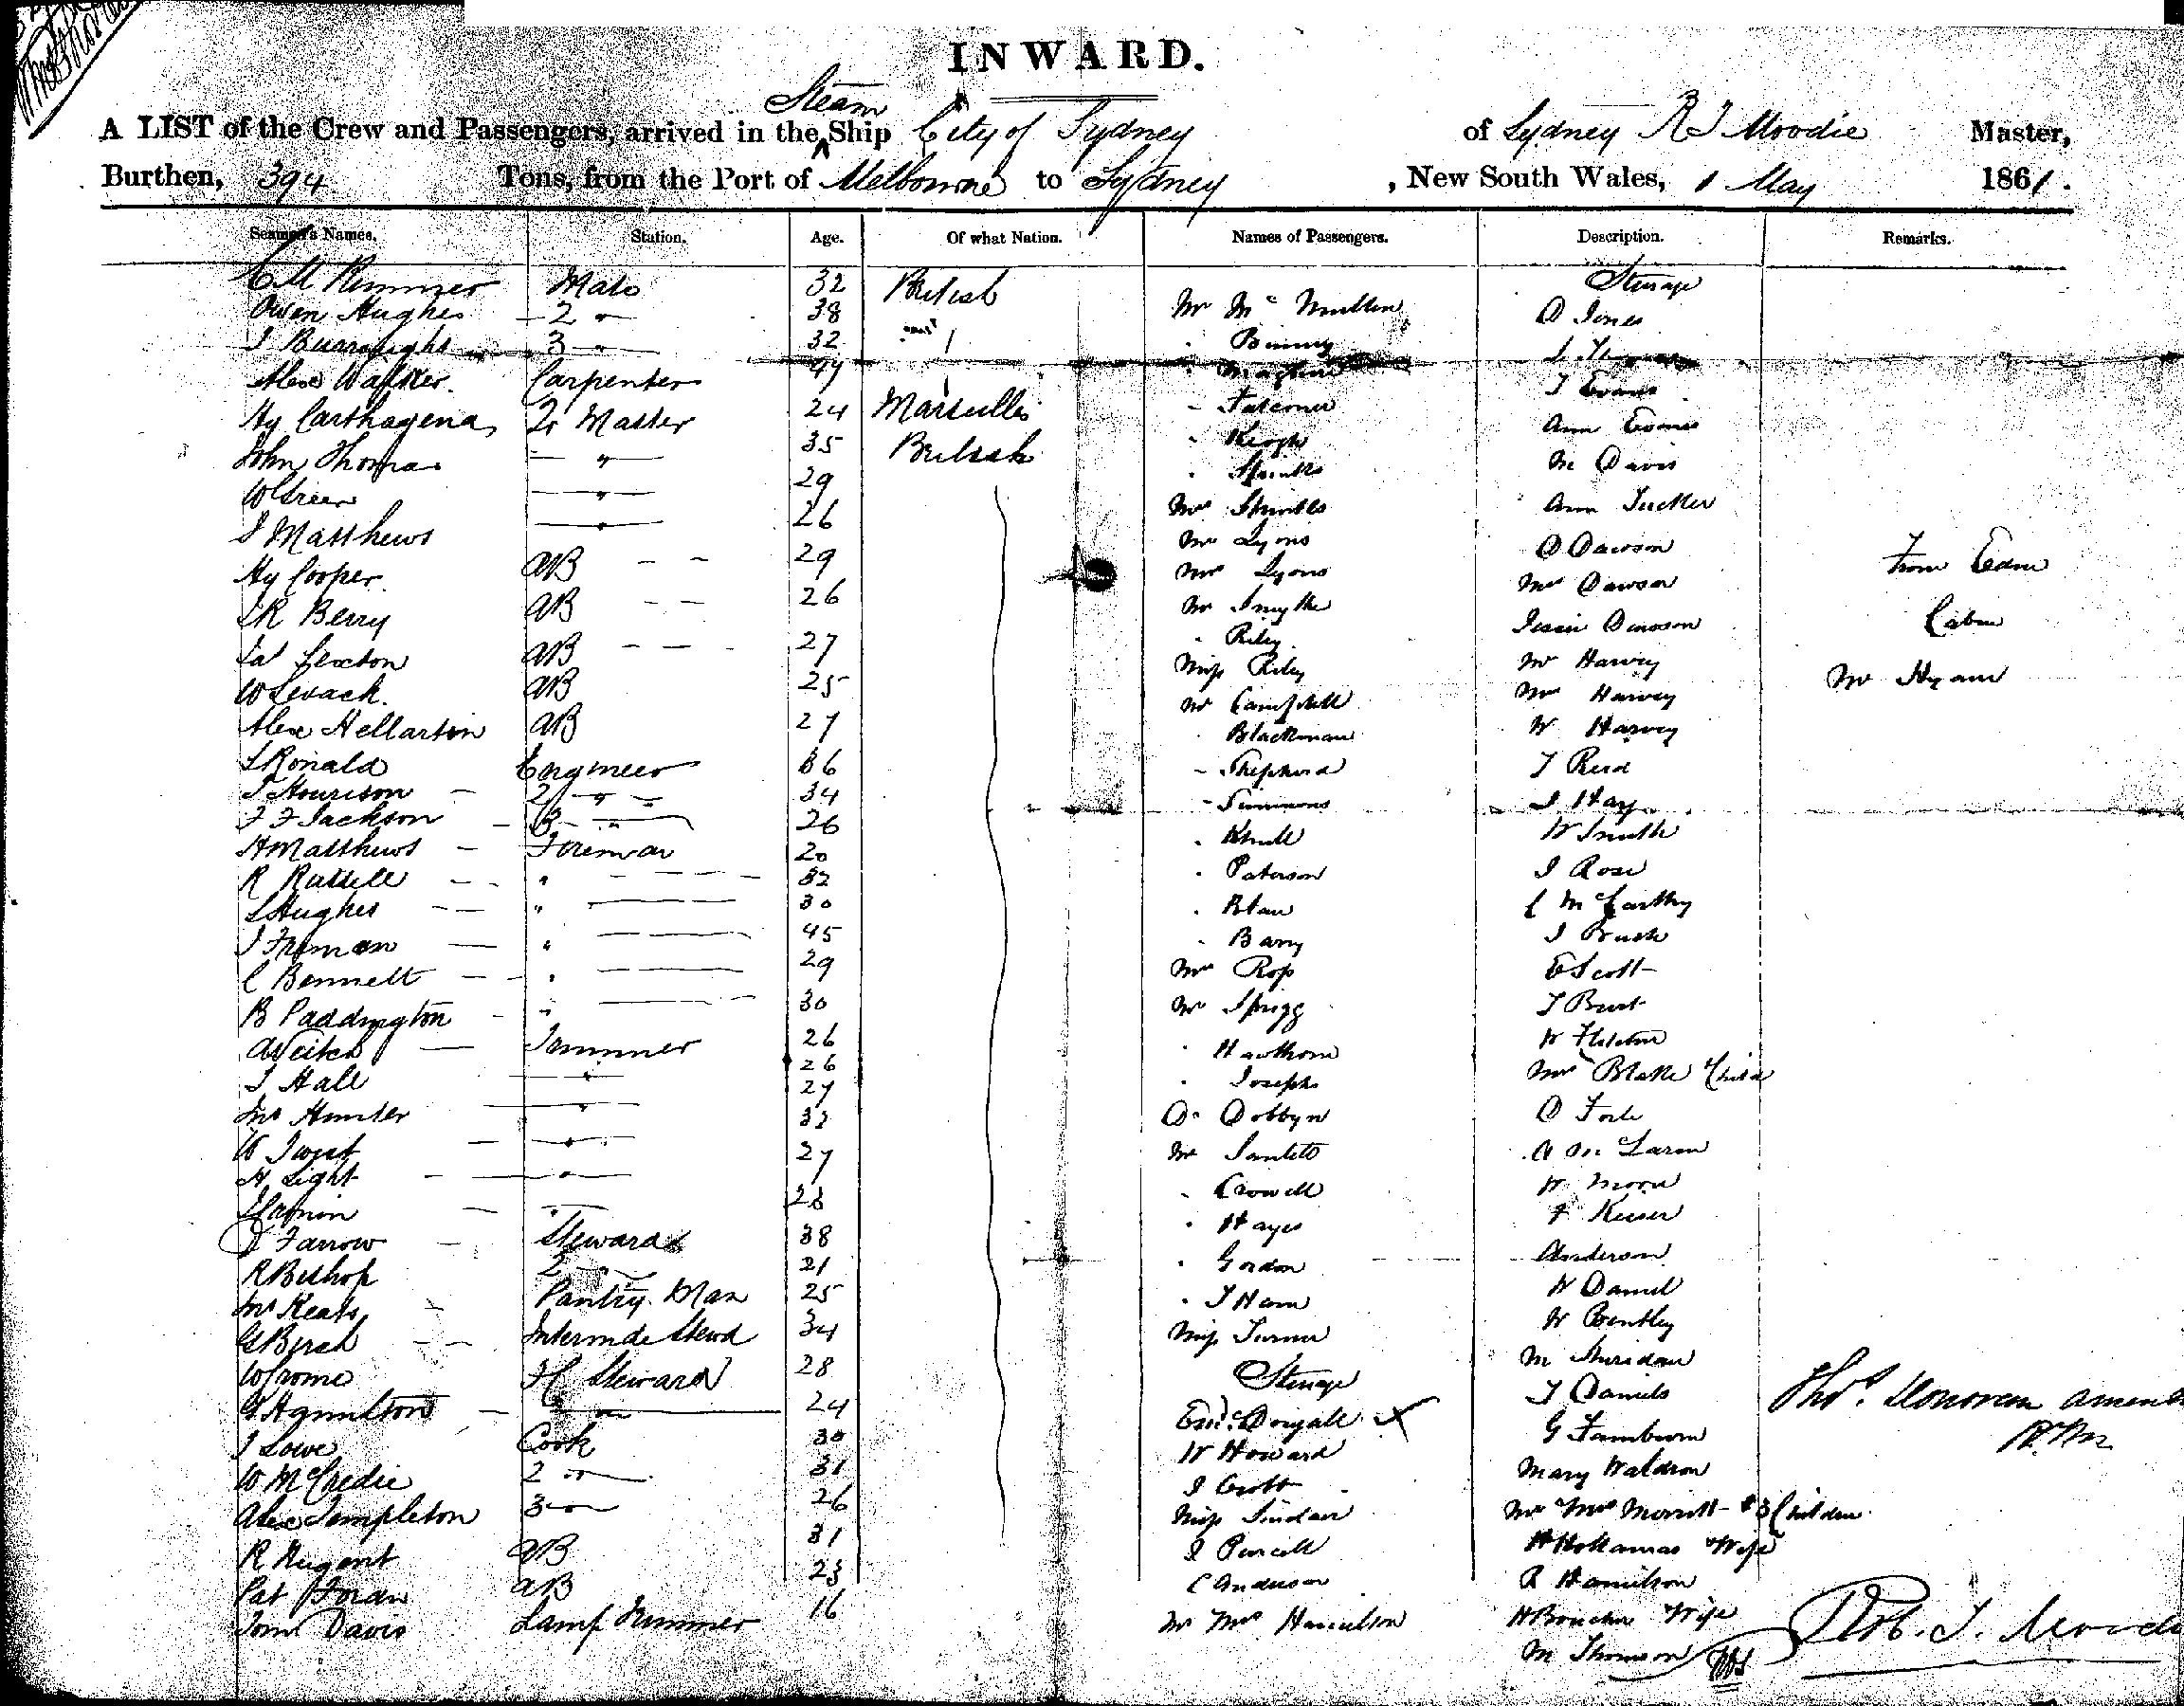 INWARD.
Steam
A LIST of the Crew and Passengers, arrived in the Ship City of Sydney of Sydney R T Moodie Master,
Burthen, 394 Tons, from the Port of Melbourne to Sydney, New South Wales, 1 May 1861.
Seamen's Names. Station. Age. Of what Nation. Names of Passengers. Description. Remarks.
C M Rimmer Mate 32 British Steerage
Owen Hughes 2 " 38 Mr McMullen D Jones
J Burroughs 3 " 32 " Binney
Alexr Walker Carpenter 44
Hy Carthagena Qr Master 24 Marseilles - Falconer T Evans
John Thomas " 35 British " Keogh Ann Evans
W Green " 29 M Davis
J Matthews " 26 Mrs Ann Tucker
Hy Cooper AB 29 Mr Lyons D Dawson From Eden
J R Berry AB 26 Mrs Lyons Mrs Dawson Cabin
Jas Sexton AB 27 Mr Smythe Jessie Dawson
W Levack AB 25 " Riley Mr Harvey Mr Hyam
Alexr Hellarton AB 27 Miss Riley Mrs Harvey
J Ronald Engineer 36 Mr Campbell W Harvey
J Hourison 2 " 34 " Blackman T Reid
F F Jackson 3 " 26 - Shepherd J Hay
H Matthews Fireman 20 - Simmons W Smith
R Russell " 32 J Rose
J Hughes " 30 " Paterson C McCarthy
J Freman " 45 " Blau J Brush
C Bennett " 29 " Barry E Scott
B Paddington " 30 Mrs Ross T Burt
A Veitch Trimmer 26 Mr Sprigg W Fletcher
J Hall " 26 " Hawthorn Mrs Blake & Child
Jno Hunter " 27 " Joseph D Forte
W Twist " 32 Dr Dobbyn A McLaren
H Light " 27 Mr W Moore
" 28 " Crowell F Keiser
D Farrow Steward 38 " Hayes Anderson
R Bishop 2 " 21 " Gordon W Daniel
Jno Keats Pantry Man 25 " J Ham W Bentley
G Birch Intermde Stewd 34 Miss Turner M Sheridan
W Crome F C Steward 28 Steerage T Daniels Thos. Donovan
G Hamilton " 24 Dougall X G Famburn
J Lowe Cook 30 W Howard Mary Waldron
W McCredie 2 " 31 J Crott Mr Mrs Morritt & 3 Children
Alex Templeton 3 " 26 Miss Sinclair Wife
R Nugent AB 31 J Purcell R Hamilton
Pat Foran AB 23 C Anderson H Boucher Wife
Tom Davis Lamp Trimmer 16 Mr Mrs Hamilton M Thomson
Rob. T. Moodie